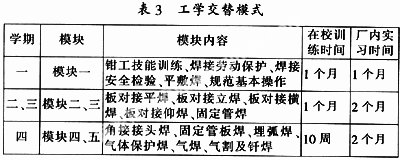 表 3 工学交替模式
学期 模块 模块内容 在校训练时间 厂内实习时间
一 模块一 钳工技能训练、焊接劳动保护、焊接安全检验、平敷焊、规范基本操作 1个月 1个月
二、三 模块二、三 板对接平焊、板对接立焊、板对接横焊、板对接仰焊、固定管焊 1个月 2个月
四 模块四、五 角接接头焊、固定管板焊、埋弧焊、气体保护焊、气焊、气割及钎焊 10周 2个月